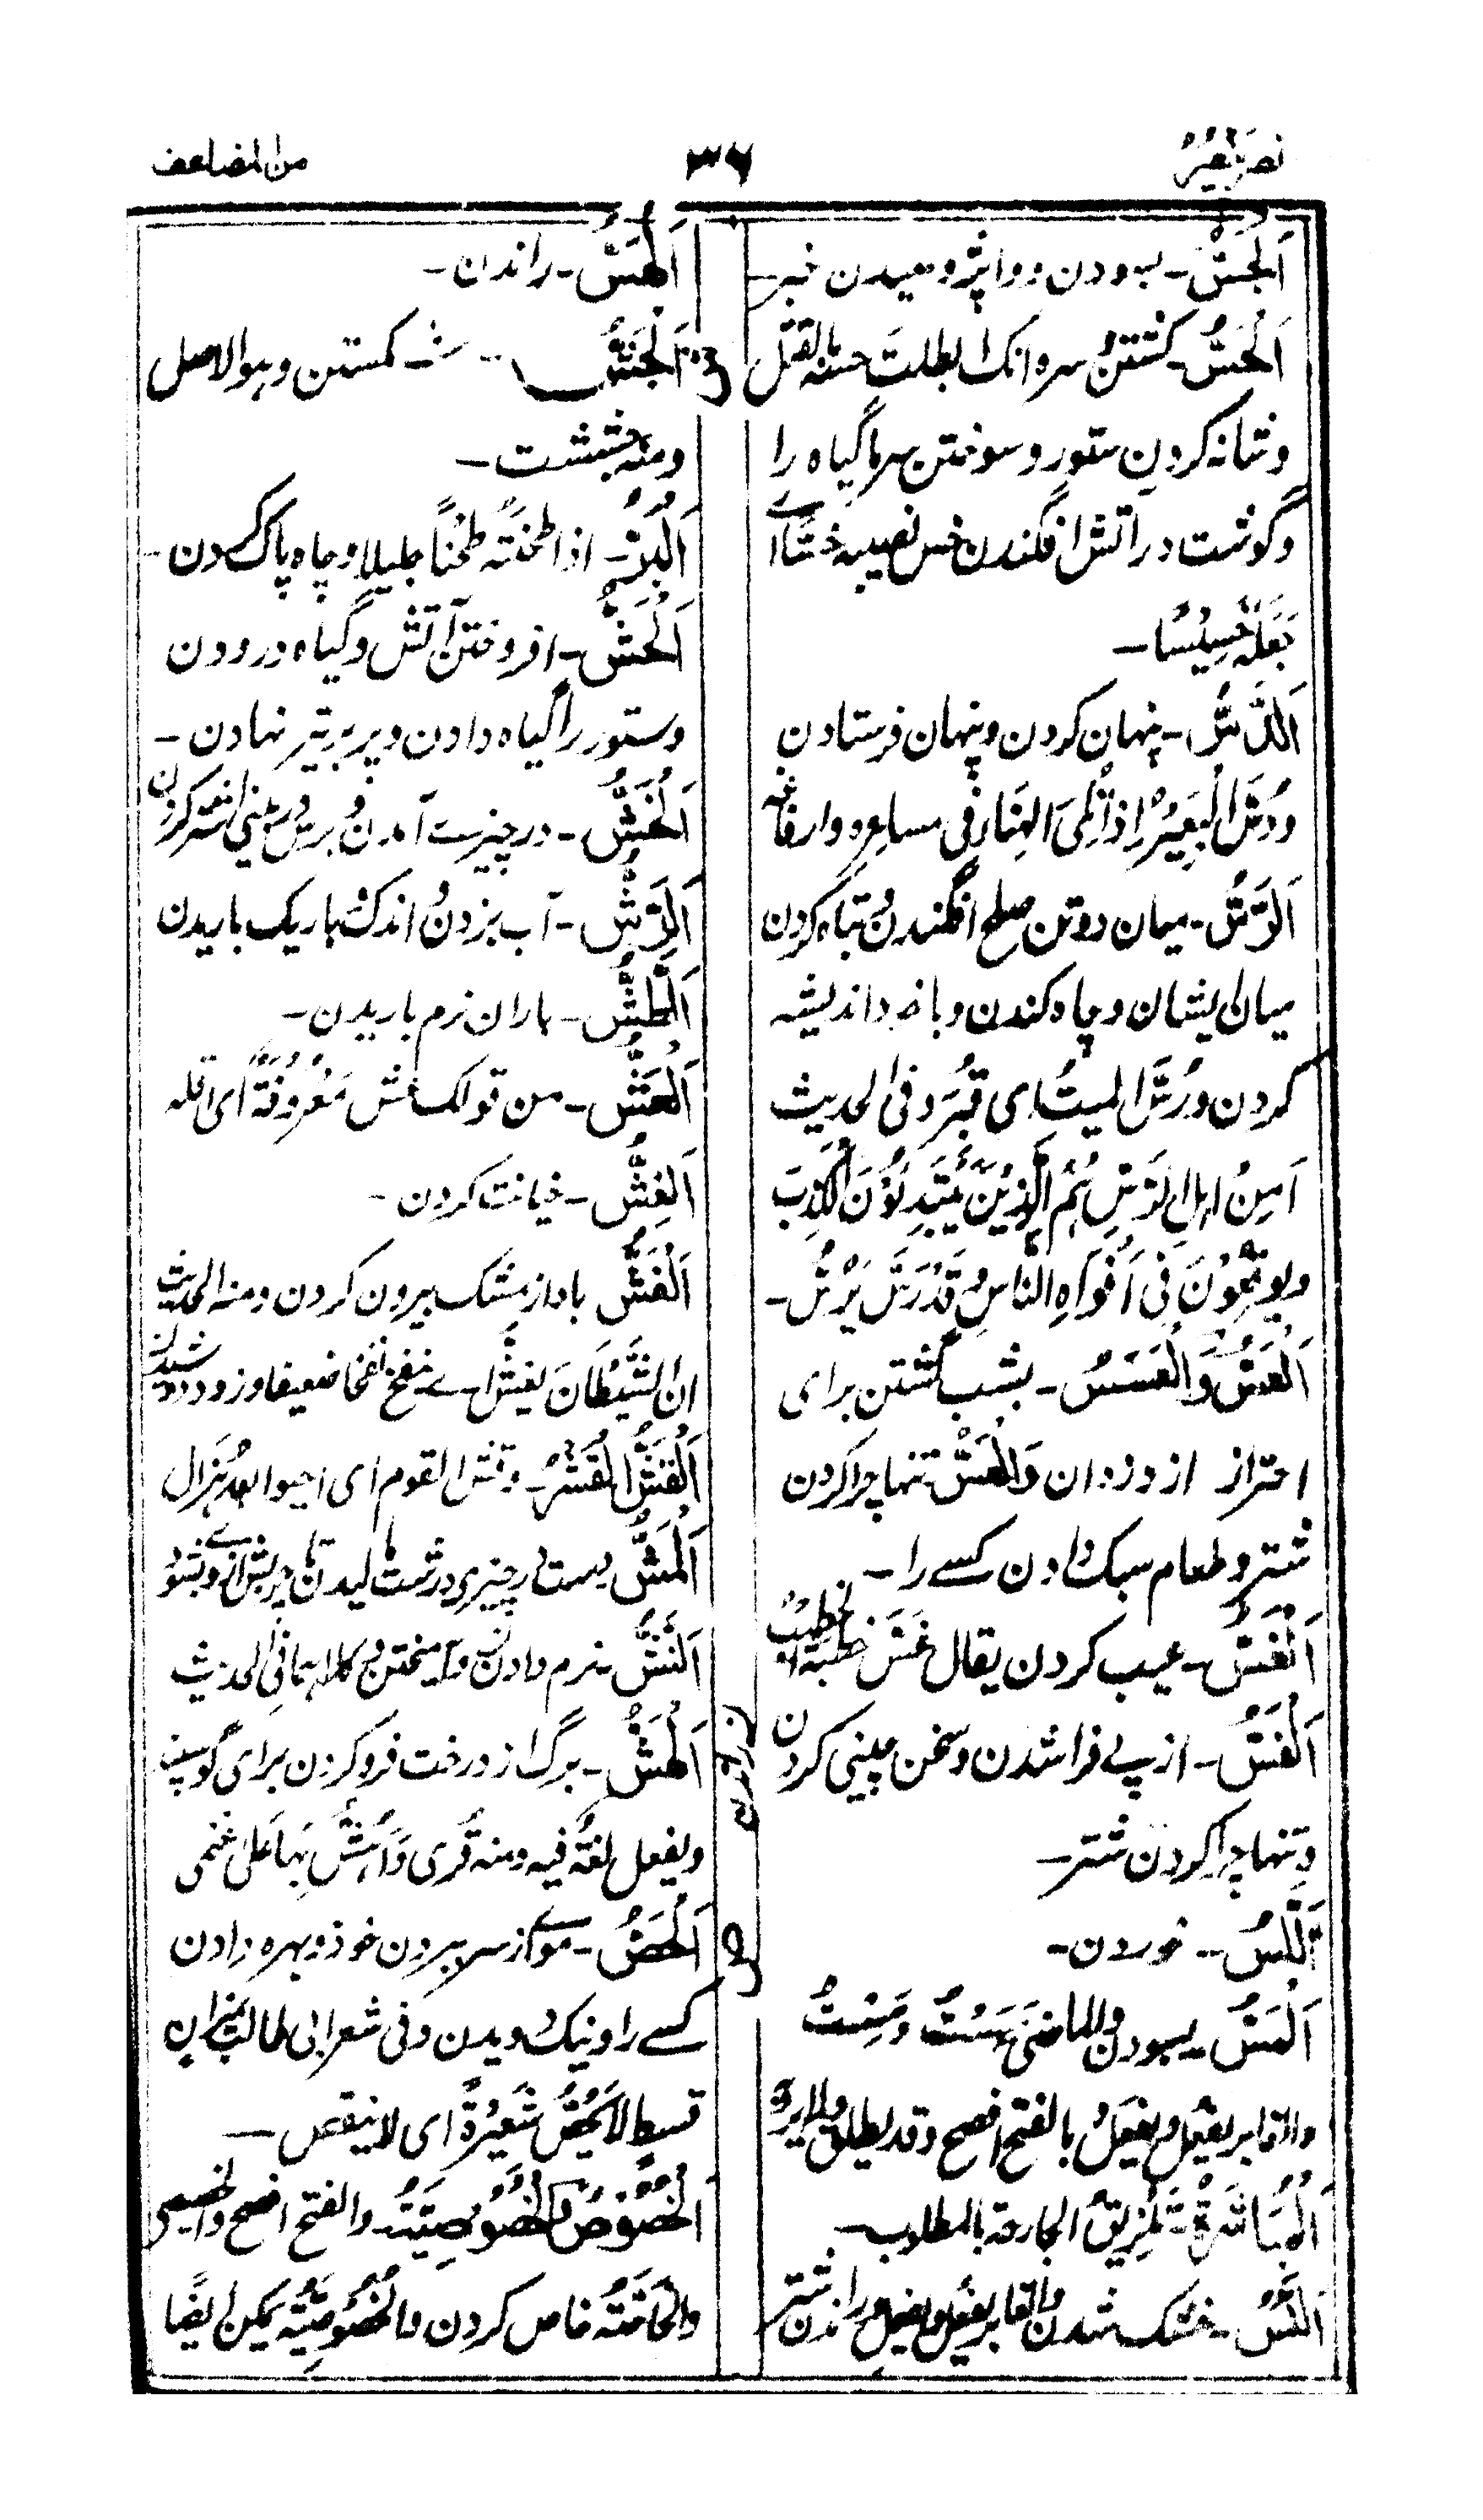 نصر ینصر
۳۶
من المضاعف
اَلْجَسُّ۔ بسودن و واپژوهیدن خبر
اَلْحَسُّ۔ کشتن سره انک ابطلتَ حسّه بالقتل
و شانه کردن ستور و سوختن سرما گیاه را
و گوشت در آتش افگندن خس نصیبه خسًّا اے
جَعَلَهٗ خَسِیْسًا۔
اَلدَّسُّ۔ پنهان کردن و پنهان فرستادن
ودُسَّ الْبَعِیْرُ اِذا طُلِیَ الهِنَاءُ فی مساعره وارفاغه
اَلرَّسُّ۔ میان دو تن صلح افگندن و تباه کردن
میان ایشان و چاه کندن و با خود اندیشه
کردن ورُسَّ المیتُ ای قُبِرَ و فی الحدیث
اَمِنْ اهلِ الرَّسِّ هُمُ الَّذِیْنَ یَبْتَدِئُوْنَ الْکَذِبَ
ویوقعُوْنَ فی اَفْوَاهِ النَّاسِ وَقَدْ رَسَّ یَرُسُّ۔
اَلْعَسُّ وَالْعَسَسُ۔ بشب گشتن برای
احتراز از دزدان وَالْعَسُّ تنها چرا کردن
شتر و طعام سبک دادن کسے را۔
اَلْغَسُّ۔ عیب کردن یقال غَسَّ خطبة الخطیب
اَلْقَسُّ۔ از پے فرا شدن و سخن چینی کردن
و تنها چرا کردن شتر۔
اَللَّسُّ۔ خوردن۔
اَلْمَسُّ۔ بسودن والماضی مَسَسْتُ ومَسِسْتُ
والغابر یفعُل ویفعَلُ بالفتح افصح وقد یطلق ولا یراد
اَلْمُبَاشَرَةُ تَلْزِیْقُ الجارحة بالمطلوب۔
اَلنَّسُّ۔ خشک شدن والغابر یفعُل ویفعِل وراندن شتر
اَلْهَسُّ۔ راندن۔
ش اَلْجَشُّ۔ شکستن و هو الاصل
ومنه جشیشت۔
اَلْبُرُّ۔ اذا طحنتَه طحْنًا جلیلا و چاه پاک کردن۔
اَلْحَشُّ۔ افروختن آتش و گیاه درودن
و ستور را گیاه دادن و پر بر تیر نهادن۔
اَلْخَشُّ۔ در چیزے آمدن و برس در بینی اشتر کردن
اَلرَّشُّ۔ آب بزدن و اندک باریک باریدن
اَلطَّشُّ۔ باران نرم باریدن۔
اَلْعَشُّ۔ من قولک عش مَعْرُوْفَهٗ ای اقله
اَلْغِشُّ۔ خیانت کردن۔
اَلْفَشُّ باد از مشک بیرون کردن ومنه الحدیث
ان الشَّیْطَانَ یفشّ اے ینفخ نفخا ضعیفا و زود دوشیدن
اَلْقَشُّ الْقَشْرُ۔ وقش القوم ای احیوا بعد هُزال
اَلْمَشُّ دست بر چیزی درشت مالیدن تا چربش ازو بشود
اَلنَّشُّ۔ نرم راندن و آمیختن و کلاهما فی الحدیث
اَلْهَشُّ۔ برگ از درخت فرو کردن برای گوسپند
ویفعل لغةٌ فیه ومنه قُرِی وَاَهُشُّ بِهَا عَلٰی غنمی
ص اَلْحَصُّ۔ موے از سر ببردن خود و بهره دادن
کسے را و نیک دویدن و فی شعر ابی طالب بمیزان
قسط لَا یَحُصُّ شَعِیْرَةً ای لا ینقص۔
اَلْخُصُوْصُ وَالْخُصُوْصِیَّةُ۔ والفتح افصح والخصیصی
والخاصَّة خاص کردن والخُصُوْصِیَّة یمکن ایضًا